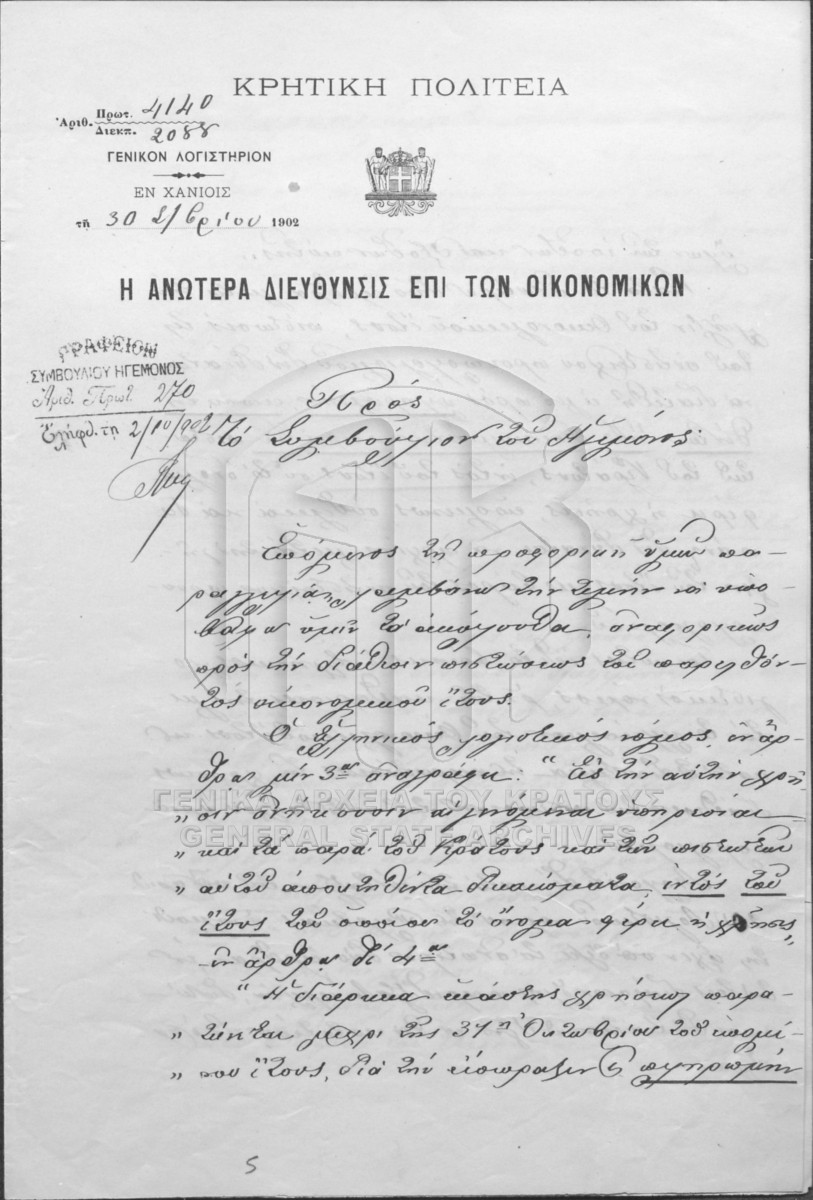 ΚΡΗΤΙΚΗ ΠΟΛΙΤΕΙΑ
Ἀριθ. Πρωτ. 4140
Διεκπ. 2088
ΓΕΝΙΚΟΝ ΛΟΓΙΣΤΗΡΙΟΝ
ΕΝ ΧΑΝΙΟΙΣ
τῇ 30 7/βρίου 1902
Η ΑΝΩΤΕΡΑ ΔΙΕΥΘΥΝΣΙΣ ΕΠΙ ΤΩΝ ΟΙΚΟΝΟΜΙΚΩΝ
ΓΡΑΦΕΙΟΝ
ΣΥΜΒΟΥΛΙΟΥ ΗΓΕΜΟΝΟΣ
Ἀριθ. Πρωτ. 270
Ἐλήφθ. τῇ 2/10/902
Πρός
Τό Συμβούλιον τοῦ Ἡγεμόνος
Ἑπόμενος τῇ προφορικῇ ὑμῶν πα-
ραγγελίᾳ, λαμβάνω τήν τιμήν νά ὑπο-
βάλω ὑμῖν τά ἀκόλουθα, ἀναφορικῶς
πρός τήν διάθεσιν πιστώσεως τοῦ παρελθόν-
τος οἰκονομικοῦ ἔτους.
Ὁ Ἑλληνικός λογιστικός νόμος, ἐν ἄρ-
θρῳ μέν 3ῳ ἀναγράφει: "Εἰς τήν αὐτήν χρῆ-
„ σιν ἀνήκουσιν αἱ γενόμεναι ὑπηρεσίαι
„ καί τά παρά τοῦ Κράτους καί τῶν πιστωτῶν
„ αὐτοῦ ἀποκτηθέντα δικαιώματα ἐντός τοῦ
ἔτους τοῦ ὁποίου τό ὄνομα φέρει ἡ χρῆσις„
ἐν ἄρθρῳ δέ 4ῳ
" Ἡ διάρκεια ἑκάστης χρήσεως παρα-
„ τείνεται μέχρι τῆς 31ης Ὀκτωβρίου τοῦ ἑπομέ-
„ νου ἔτους, διά τήν εἴσπραξιν ἤ πληρωμήν
5
ΓΕΝΙΚΑ ΑΡΧΕΙΑ ΤΟΥ ΚΡΑΤΟΥΣ
GENERAL STATE ARCHIVES